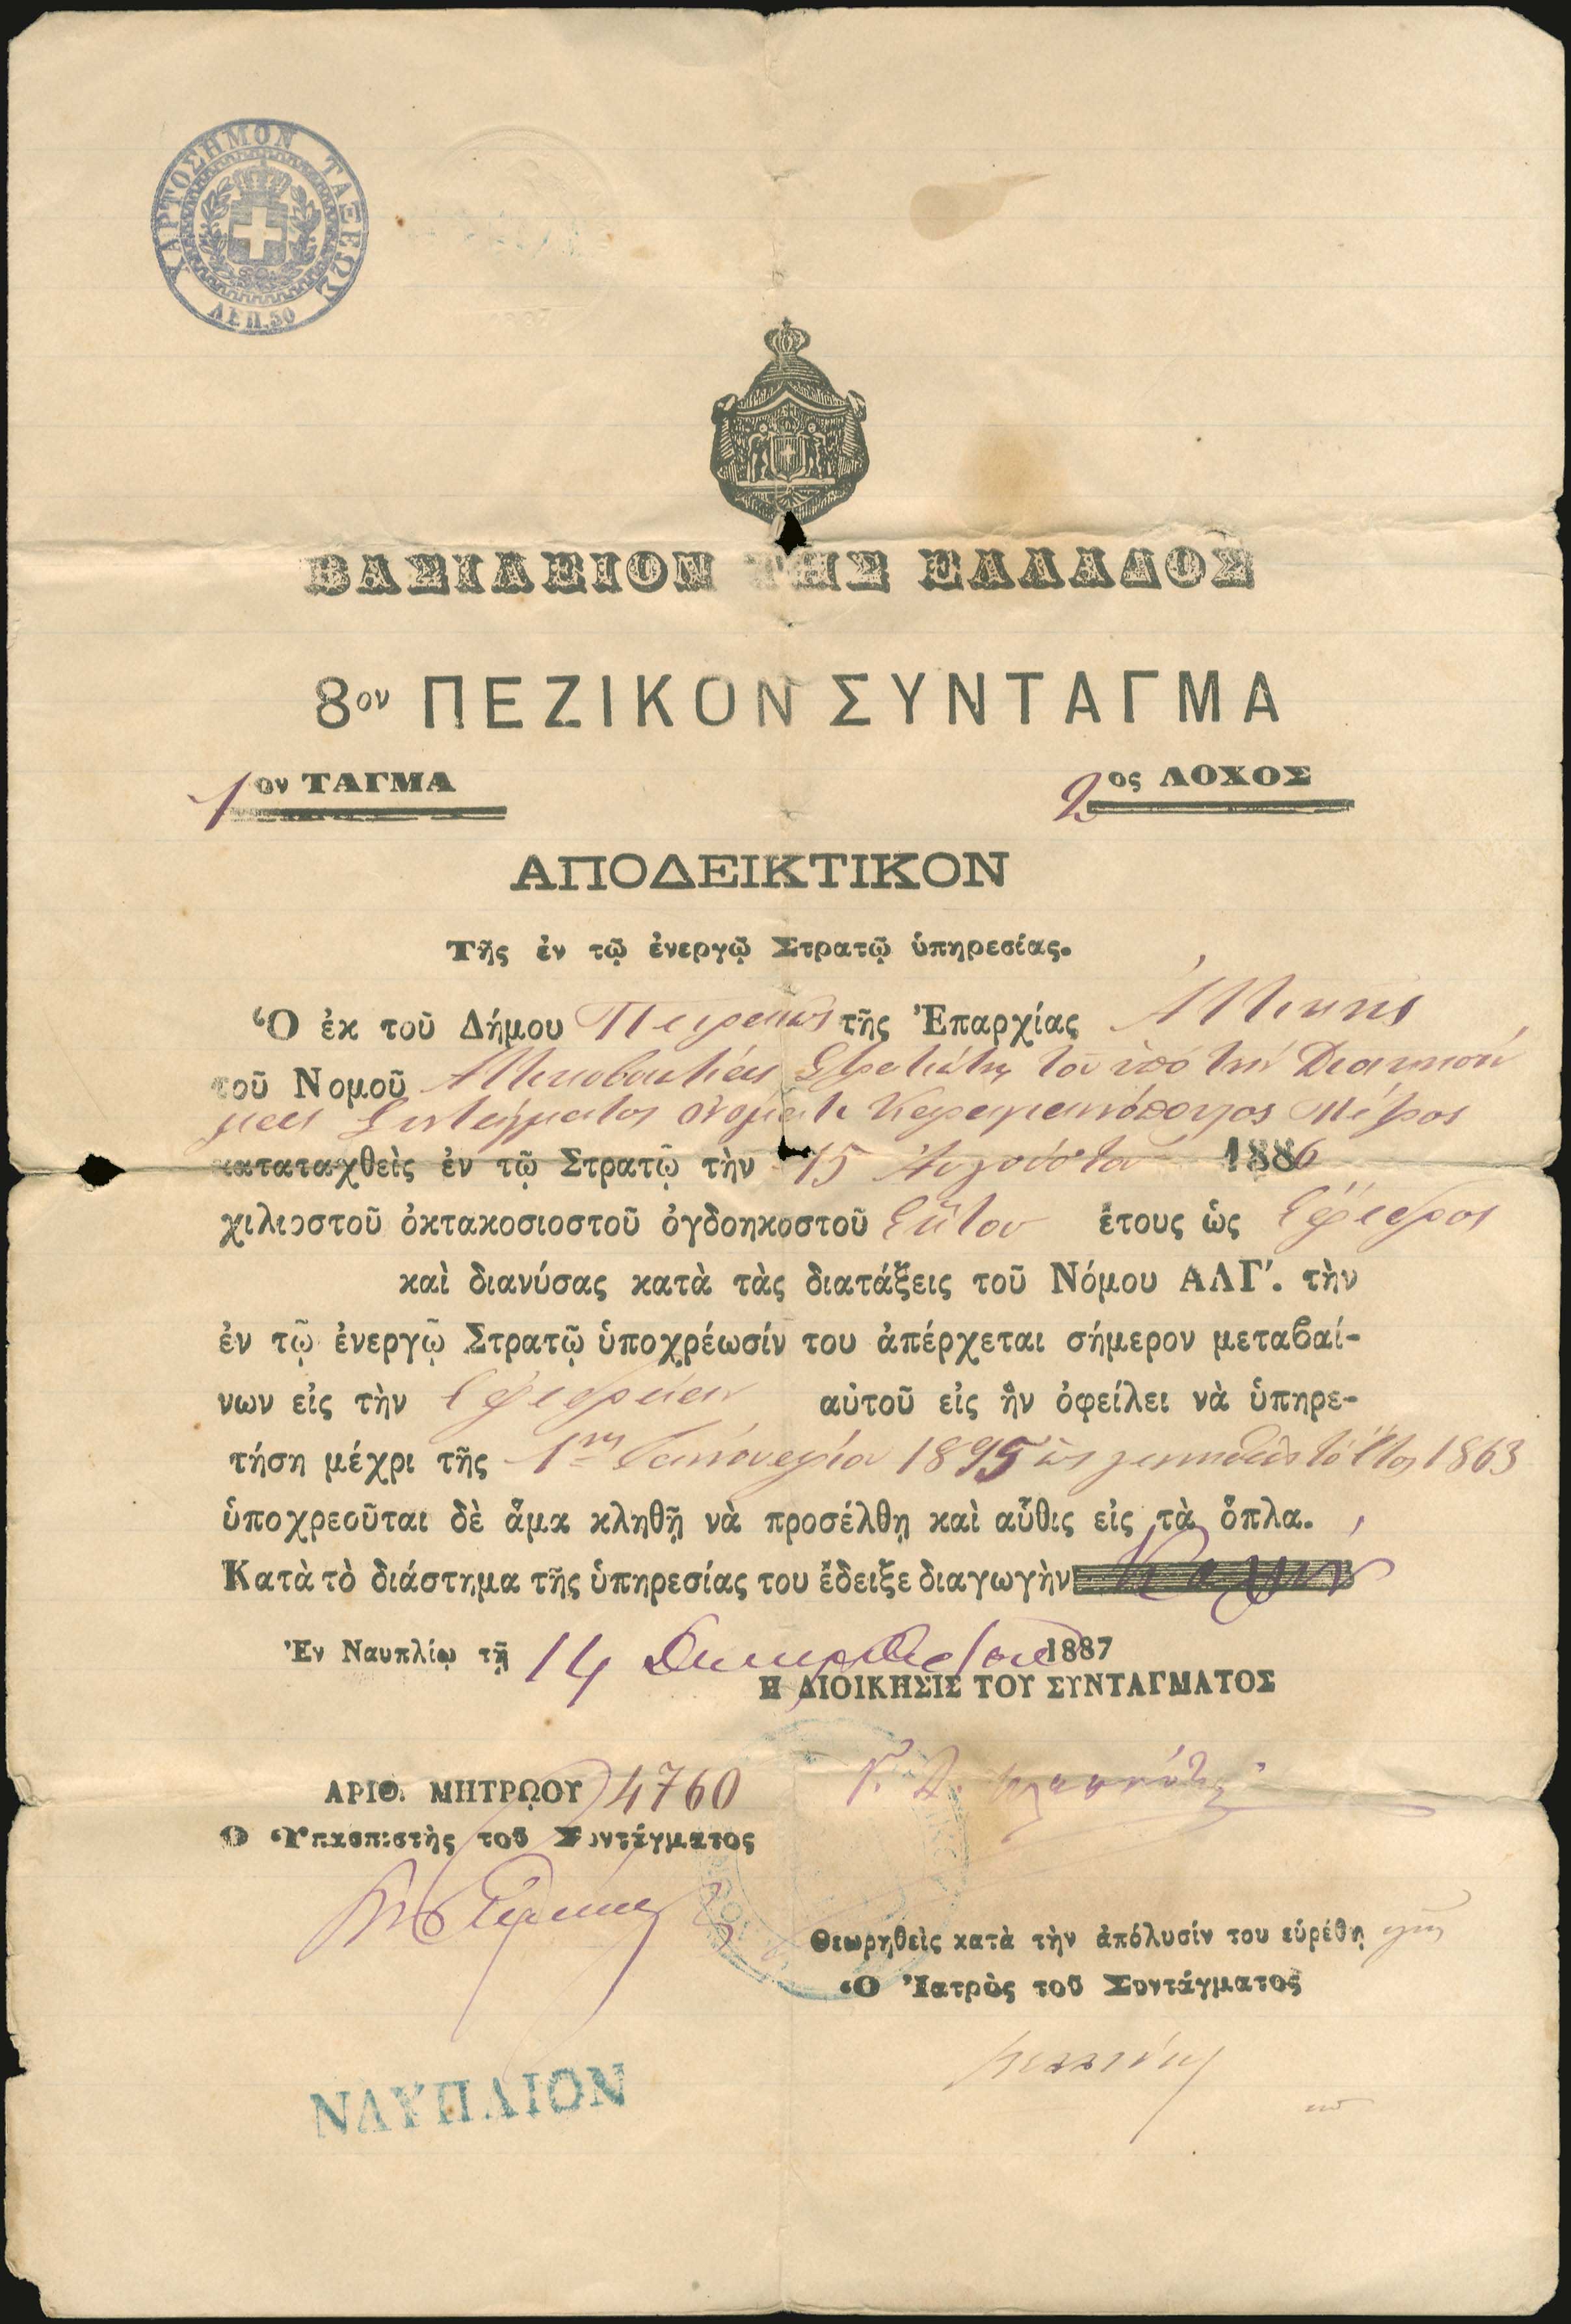 ΧΑΡΤΟΣΗΜΟΝ ΤΑΞΕΩΣ
ΛΕΠ. 50
ΒΑΣΙΛΕΙΟΝ ΤΗΣ ΕΛΛΑΔΟΣ
8ον ΠΕΖΙΚΟΝ ΣΥΝΤΑΓΜΑ
1ον ΤΑΓΜΑ 2ος ΛΟΧΟΣ
ΑΠΟΔΕΙΚΤΙΚΟΝ
Τῆς ἐν τῷ ἐνεργῷ Στρατῷ ὑπηρεσίας.
Ὁ ἐκ τοῦ Δήμου Πειραιῶς τῆς Ἐπαρχίας Ἀττικῆς
τοῦ Νομοῦ Ἀττικοβοιωτίας Στρατιώτης τοῦ ὑπὸ τὴν Διοίκησίν
μας Συντάγματος ὀνόματι Καραγιαννόπουλος Πέτρος
καταταχθεὶς ἐν τῷ Στρατῷ τὴν 15 Αὐγούστου 1886
χιλιοστοῦ ὀκτακοσιοστοῦ ὀγδοηκοστοῦ ἕκτου ἔτους ὡς ἔφεδρος
καὶ διανύσας κατὰ τὰς διατάξεις τοῦ Νόμου ΑΛΓ΄. τὴν
ἐν τῷ ἐνεργῷ Στρατῷ ὑποχρέωσίν του ἀπέρχεται σήμερον μεταβαί-
νων εἰς τὴν ἐφεδρείαν αὐτοῦ εἰς ἣν ὀφείλει νὰ ὑπηρε-
τήσῃ μέχρι τῆς 1ης Ἰανουαρίου 1895 ὡς γεννηθεὶς τὸ ἔτος 1863
ὑποχρεοῦται δὲ ἅμα κληθῇ νὰ προσέλθῃ καὶ αὖθις εἰς τὰ ὅπλα.
Κατὰ τὸ διάστημα τῆς ὑπηρεσίας του ἔδειξε διαγωγὴν Καλήν
Ἐν Ναυπλίῳ τῇ 14 Δεκεμβρίου 1887
Η ΔΙΟΙΚΗΣΙΣ ΤΟΥ ΣΥΝΤΑΓΜΑΤΟΣ
ΑΡΙΘ. ΜΗΤΡΩΟΥ 4760
Ὁ Ὑπασπιστὴς τοῦ Συντάγματος
Θεωρηθεὶς κατὰ τὴν ἀπόλυσίν του εὑρέθη ὑγιὴς
Ὁ Ἰατρὸς τοῦ Συντάγματος
ΝΑΥΠΛΙΟΝ